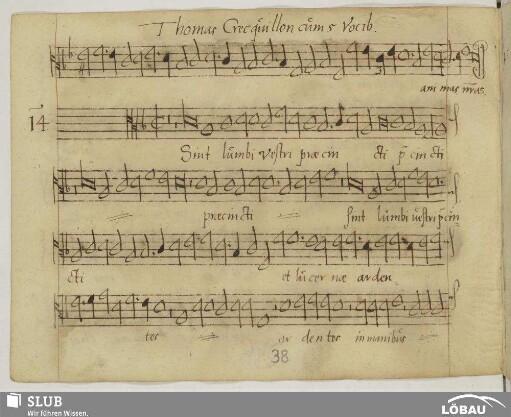 Thomas Crecquillon cum 5 vocib.
am mas nras.
14
Sint lumbi vestri præcin cti p cin cti
præcincti sint lumbi vestri
cti et lucernæ arden
tes ar dentes in manibus
38
SLUB
Wir führen Wissen.
LÖBAU